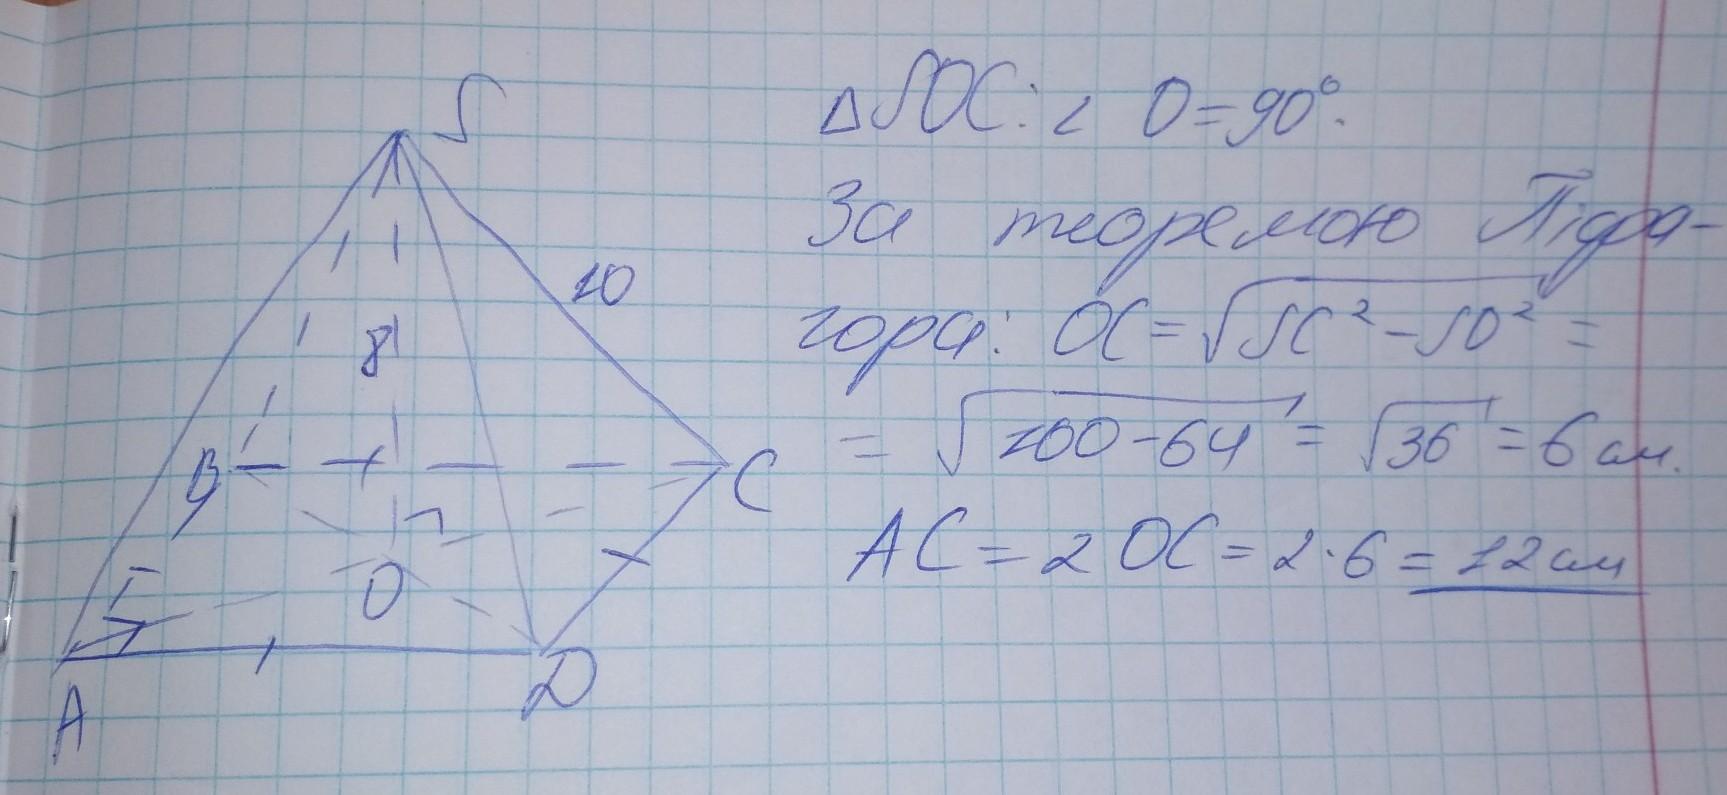 S
10
8
B
C
O
A
D
△SOC: ∠ O = 90°.
За теоремою Піфа-
гора: OC = √SC² - SO² =
= √100 - 64 = √36 = 6 см.
AC = 2 OC = 2·6 = 12 см